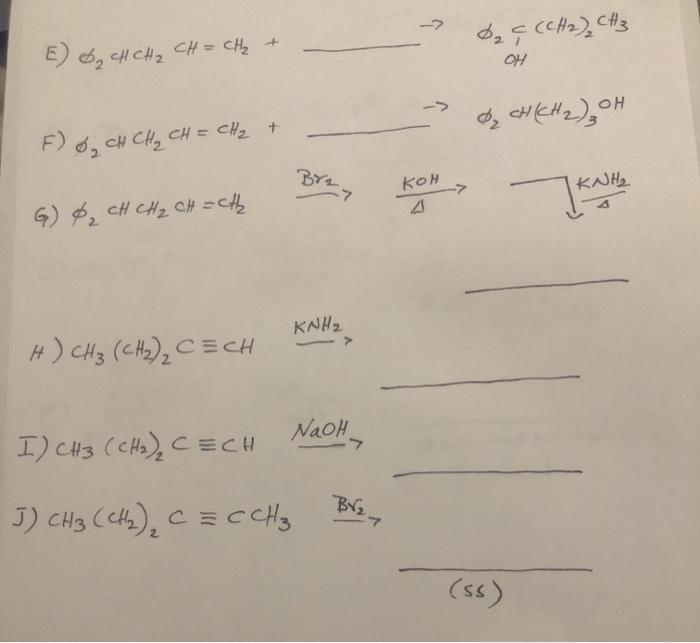 E) ϕ₂ CH CH₂ CH = CH₂ + ______ → ϕ₂ C (CH₂)₂ CH₃
OH
F) ϕ₂ CH CH₂ CH = CH₂ + ______ → ϕ₂ CH(CH₂)₃ OH
G) ϕ₂ CH CH₂ CH = CH₂ Br₂ → KOH → KNH₂
Δ Δ
H) CH₃ (CH₂)₂ C ≡ CH KNH₂ → ______
I) CH₃ (CH₂)₂ C ≡ CH NaOH → ______
J) CH₃ (CH₂)₂ C ≡ C CH₃ Br₂ → ______
(SS)